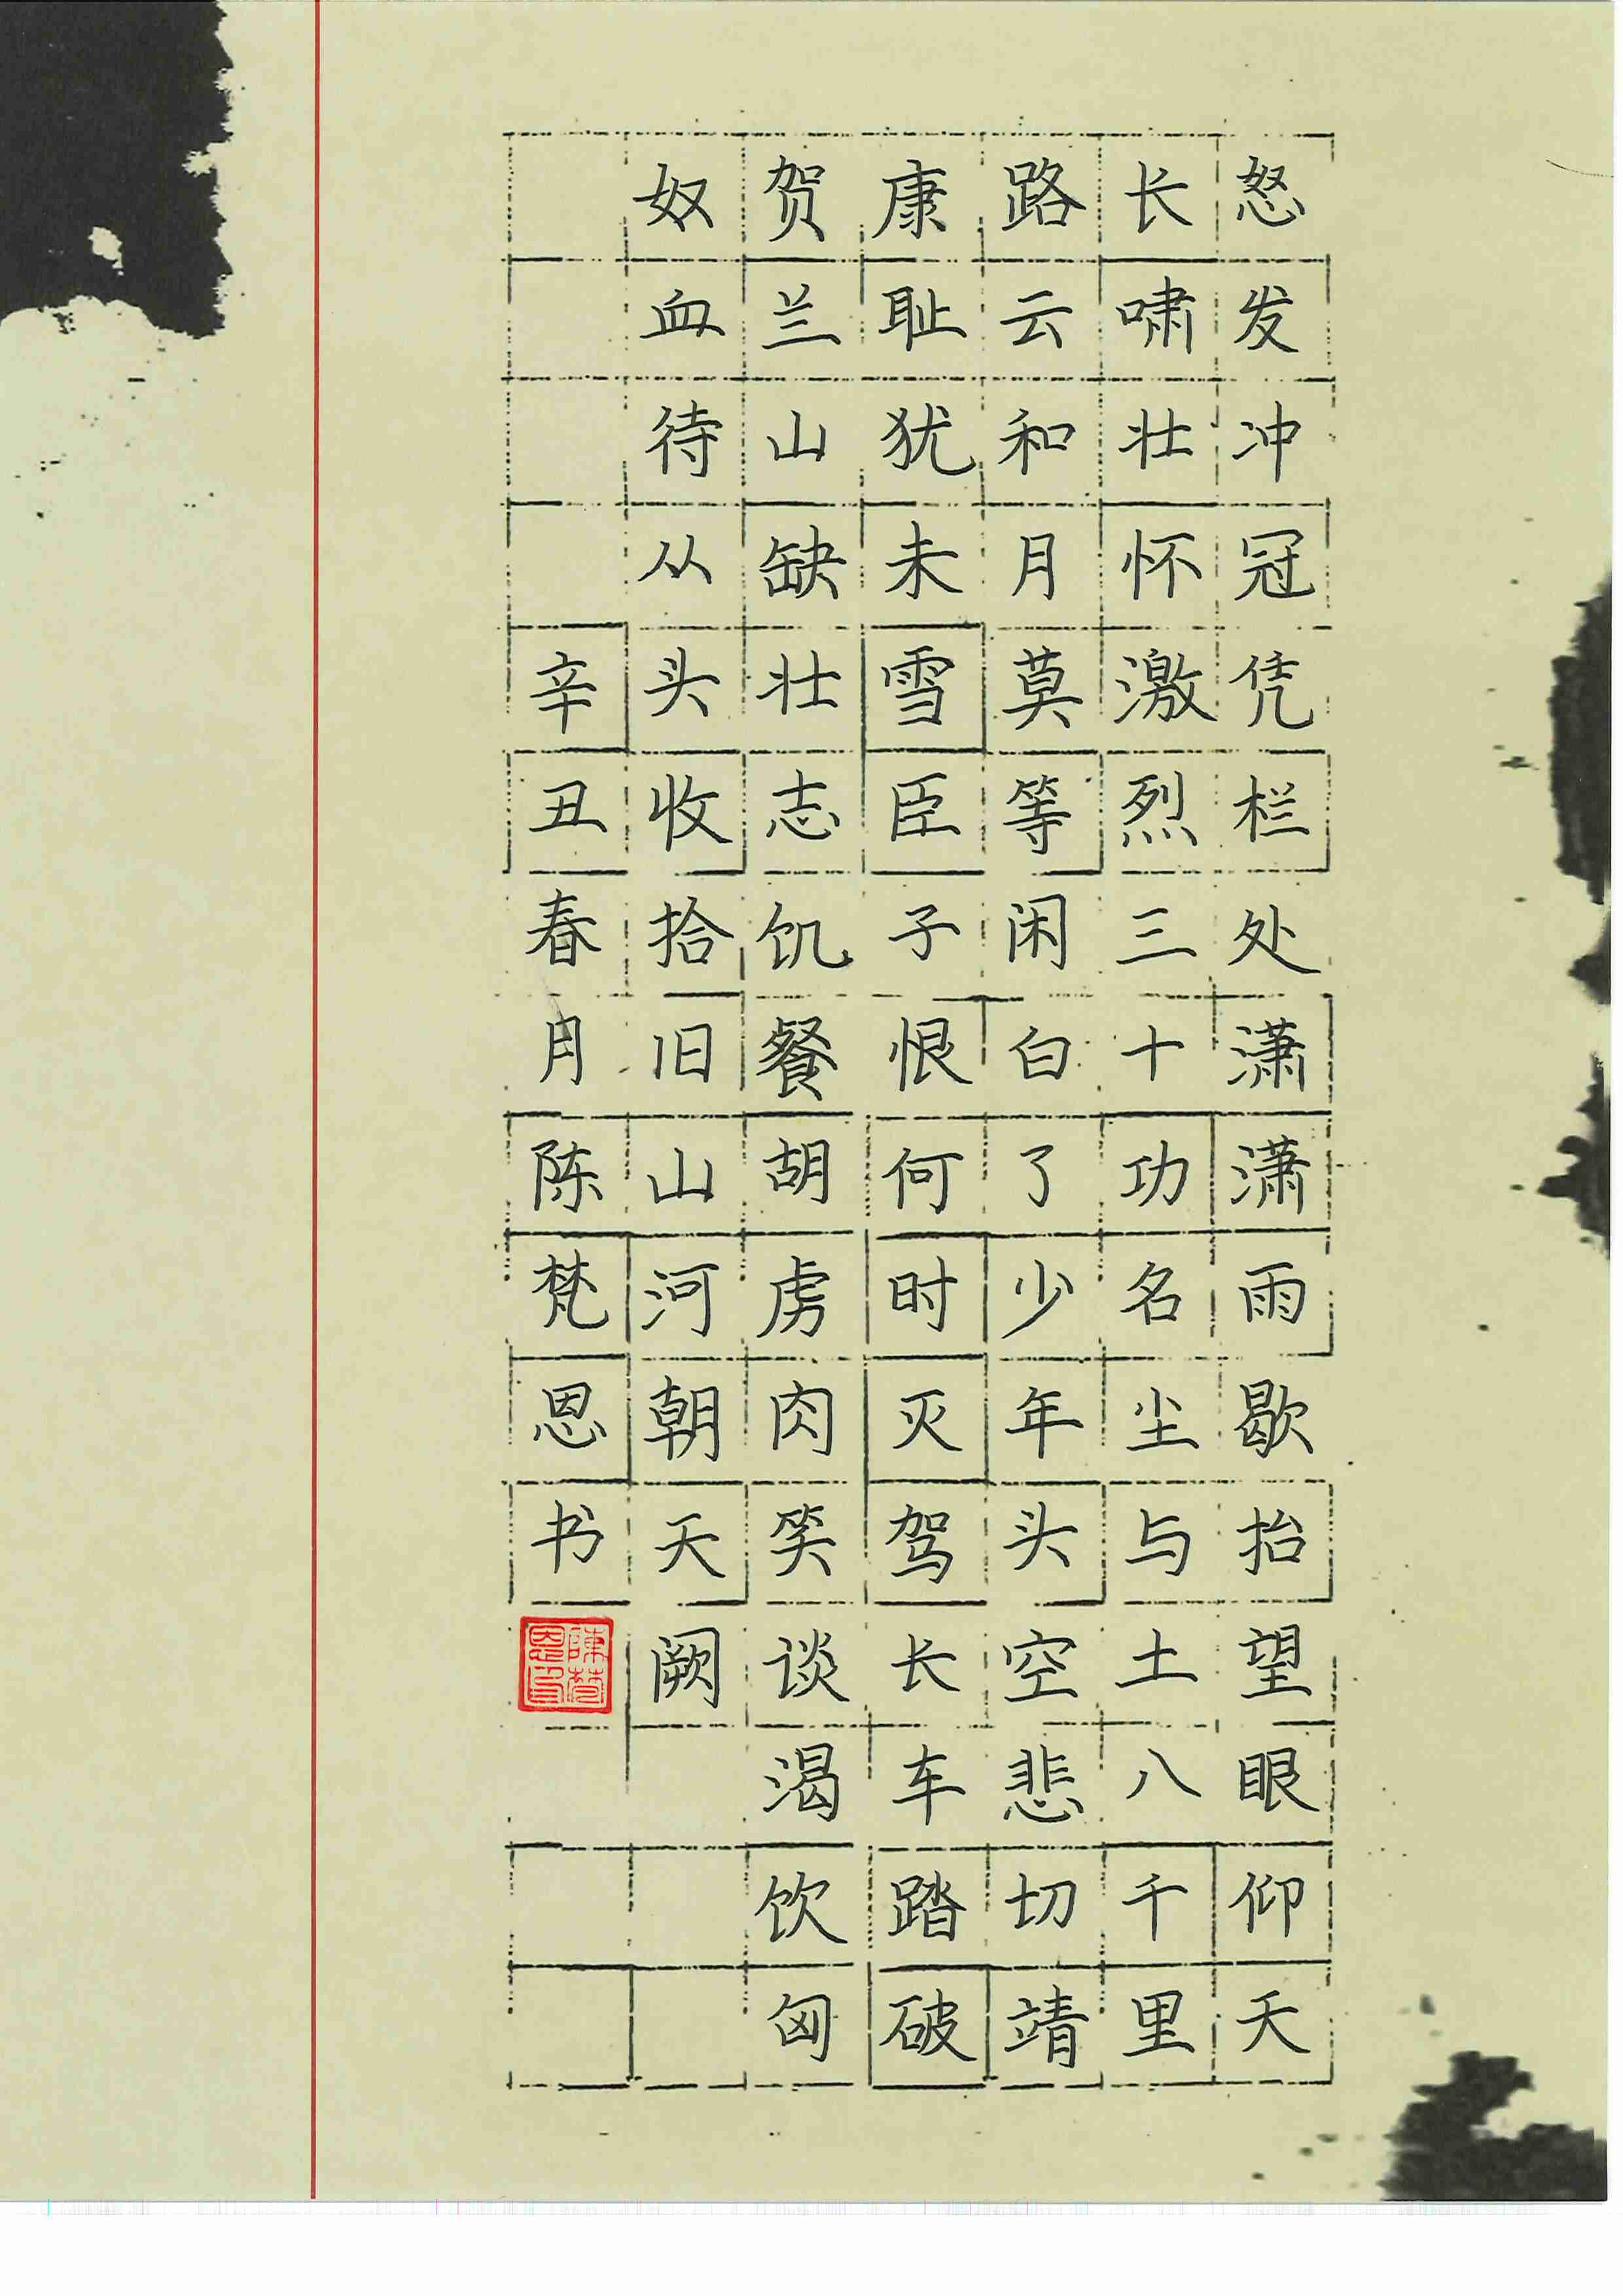 怒发冲冠凭栏处潇潇雨歇抬望眼仰天
长啸壮怀激烈三十功名尘与土八千里
路云和月莫等闲白了少年头空悲切靖
康耻犹未雪臣子恨何时灭驾长车踏破
贺兰山缺壮志饥餐胡虏肉笑谈渴饮匈
奴血待从头收拾旧山河朝天阙
辛丑春月陈梵恩书
陳梵恩印